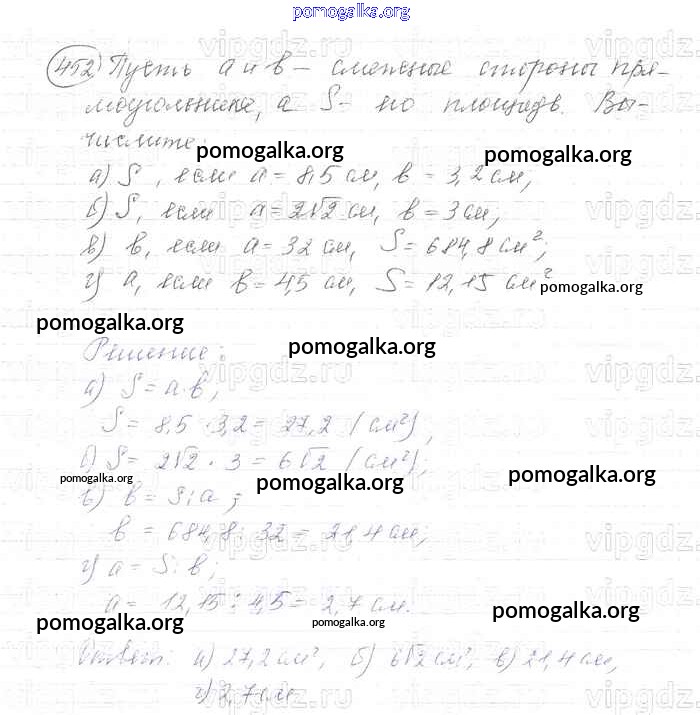 pomogalka.org
452) Пусть a и b – смежные стороны пря-
моугольника, а S – его площадь. Вы-
числите:
pomogalka.org pomogalka.org
а) S, если a = 8,5 см, b = 3,2 см,
б) S, если a = 2√2 см, b = 3 см,
в) b, если a = 32 см, S = 684,8 см²;
г) a, если b = 4,5 см, S = 12,15 см²
pomogalka.org
pomogalka.org pomogalka.org
Решение:
а) S = a·b;
S = 8,5 · 3,2 = 27,2 (см²),
б) S = 2√2 · 3 = 6√2 (см²);
pomogalka.org pomogalka.org pomogalka.org
в) b = S : a;
b = 684,8 : 32 = 21,4 см;
г) a = S : b;
a = 12,15 : 4,5 = 2,7 см.
pomogalka.org pomogalka.org pomogalka.org
Ответ: а) 27,2 см², б) 6√2 см², в) 21,4 см,
г) 2,7 см